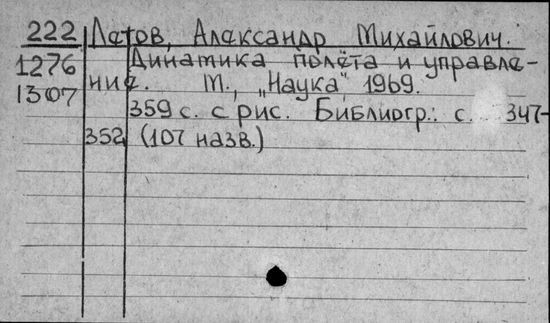 222 Летов, Александр Михайлович.
1276 Динамика полёта и управле-
1307 ние. М., „Наука", 1969.
359 с. с рис. Библиогр.: с. 347-
352 (107 назв.)